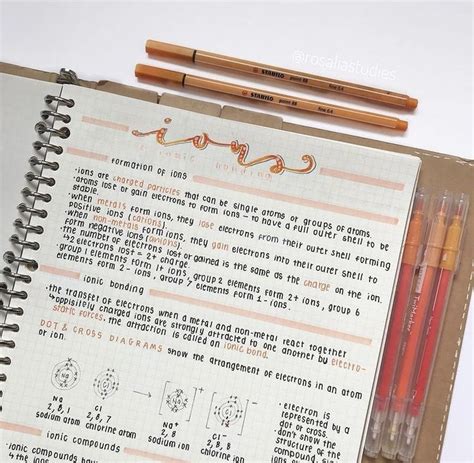 @rosaliastudies
STABILO point 88 fine 0,4
STABILO point 88 fine 0,4
ions
& ionic bonding
FORMATION OF IONS
·ions are charged particles that can be single atoms or groups of atoms.
·atoms lose or gain electrons to form ions - to have a full outer shell to be
stable.
·when metals form ions, they lose electrons from their outer shell forming
positive ions (cations).
·when non-metals form ions, they gain electrons into their outer shell to
form negative ions (anions).
·the number of electrons lost or gained is the same as the charge on the ion.
+2 electrons lost = 2+ charge.
·group 1 elements form 1+ ions, group 2 elements form 2+ ions, group 6
elements form 2- ions, group 7 elements form 1- ions.
ionic bonding
·the transfer of electrons when a metal and non-metal react together
↳oppisitely charged ions are strongly attracted to one another by electro-
static forces. the attraction is called an ionic bond.
DOT & CROSS DIAGRAMS show the arrangement of electrons in an atom
or ion.
Na
Cl
Na
+
Cl
-
Na
2, 8, 1
sodium atom
Cl
2, 8, 7
chlorine atom
Na+
2, 8
sodium ion
Cl-
2, 8, 8
chlorine ion
·electron is
represented by a
dot or cross.
·don't show the
structure of the
compound
ionic compounds
·ionic compounds have a